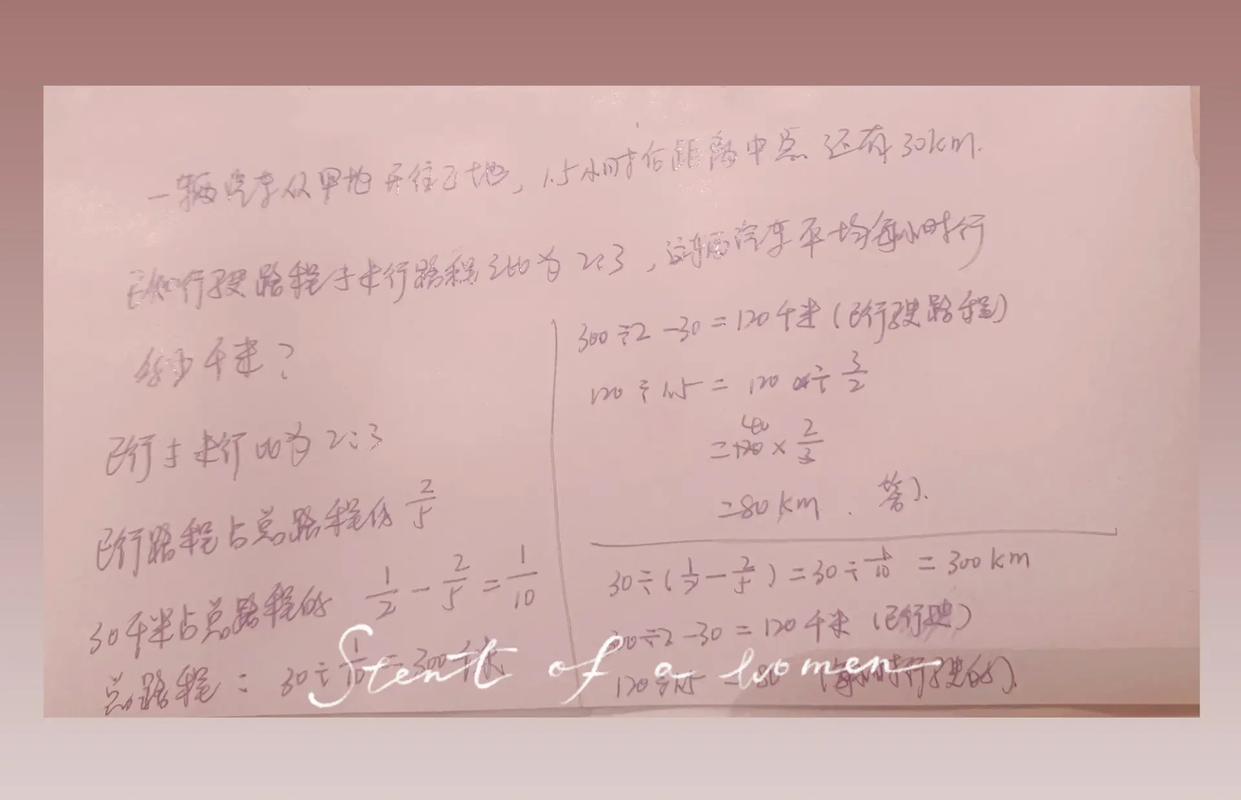 一辆汽车从甲地开往乙地，1.5小时后距离中点还有30km.
已知行驶路程于未行路程之比为2:3，这辆汽车平均每小时行
多少千米？
已行于未行比为2:3
已行路程占总路程的 2/5
30千米占总路程的 1/2 - 2/5 = 1/10
总路程： 30÷1/10 = 300千米
300÷2-30=120千米(已行驶路程)
120÷1.5 = 120 ÷ 3/2
=120 × 2/3
=80km. 答).
30÷(1/2-2/5)=30÷1/10 =300km
300÷2-30=120千米 (已行驶)
120÷1.5 =80 (每小时行驶的).
Stent of a women